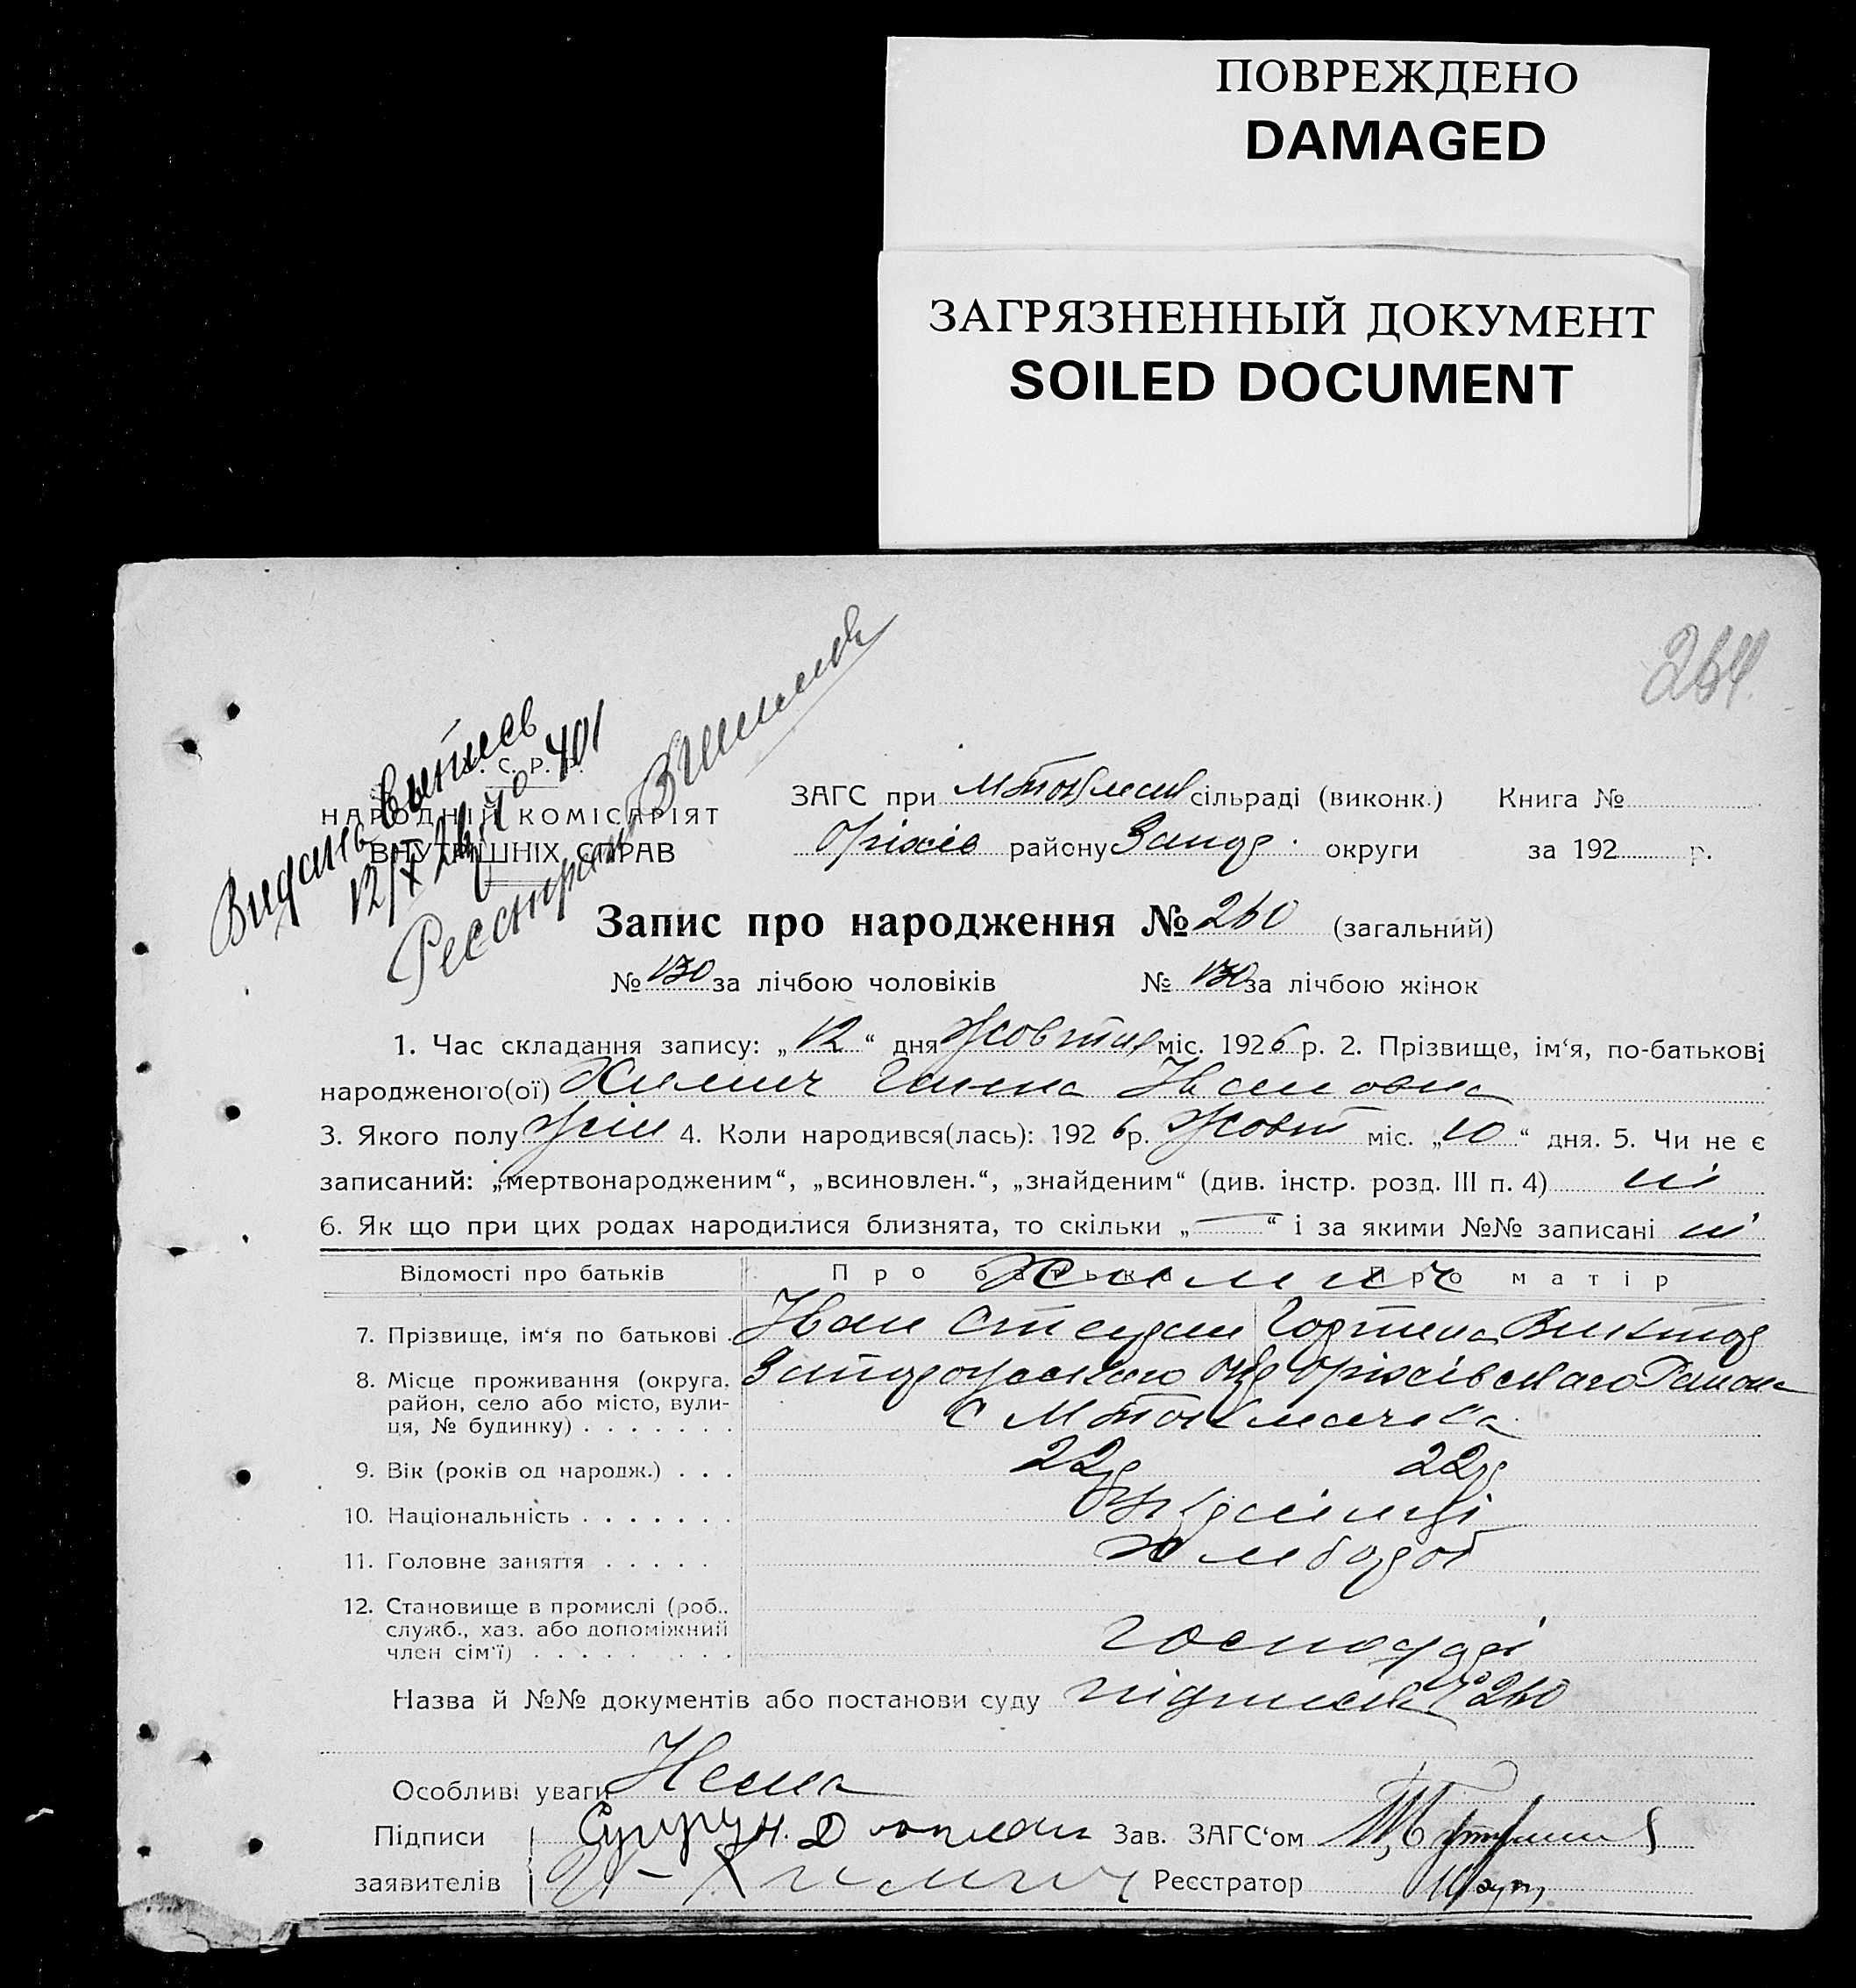 ПОВРЕЖДЕНО
DAMAGED
ЗАГРЯЗНЕННЫЙ ДОКУМЕНТ
SOILED DOCUMENT
264
Видань вытись
12/X 26 № 401
Реєстратор
С. Р. Р.
НАРОДНІЙ КОМІСАРІЯТ
ВНУТРІШНІХ СПРАВ
ЗАГС при М Токмач сільраді (виконк.) Книга №
Оріхів району Запор. округи за 192 р.
Запис про народження № 260 (загальний)
№ 130 за лічбою чоловіків № 130 за лічбою жінок
1. Час складання запису: „12“ дня Жовтня міс. 1926 р. 2. Прізвище, ім‘я, по-батькові
народженого(ої) Химич Ганна Ивановна
3. Якого полу жін 4. Коли народився(лась): 192 6 р. Жовт міс. „10“ дня. 5. Чи не є
записаний: „мертвонародженим“, „всиновлен.“, „знайденим“ (див. інстр. розд. III п. 4) ні
6. Як що при цих родах народилися близнята, то скільки „—“ і за якими №№ записані ні
Відомості про батьків Про батька Про матір
Химич
7. Прізвище, ім‘я по батькові Иван Степан Горпина Виктор
8. Місце проживання (округа, район, село або місто, вулиця, № будинку) Запорожского Окр Оріхівского Района
С М Токмачка
9. Вік (років од народж.) 22р 22р
10. Національність Українці
11. Головне заняття хлібороб
12. Становище в промислі (роб., служб., хаз. або допоміжний член сім‘ї) господарі
Назва й №№ документів або постанови суду підписка № 260
Особливі уваги Нема
Підписи Супрун. Д Зав. ЗАГС‘ом
заявителів И - Химич Реєстратор